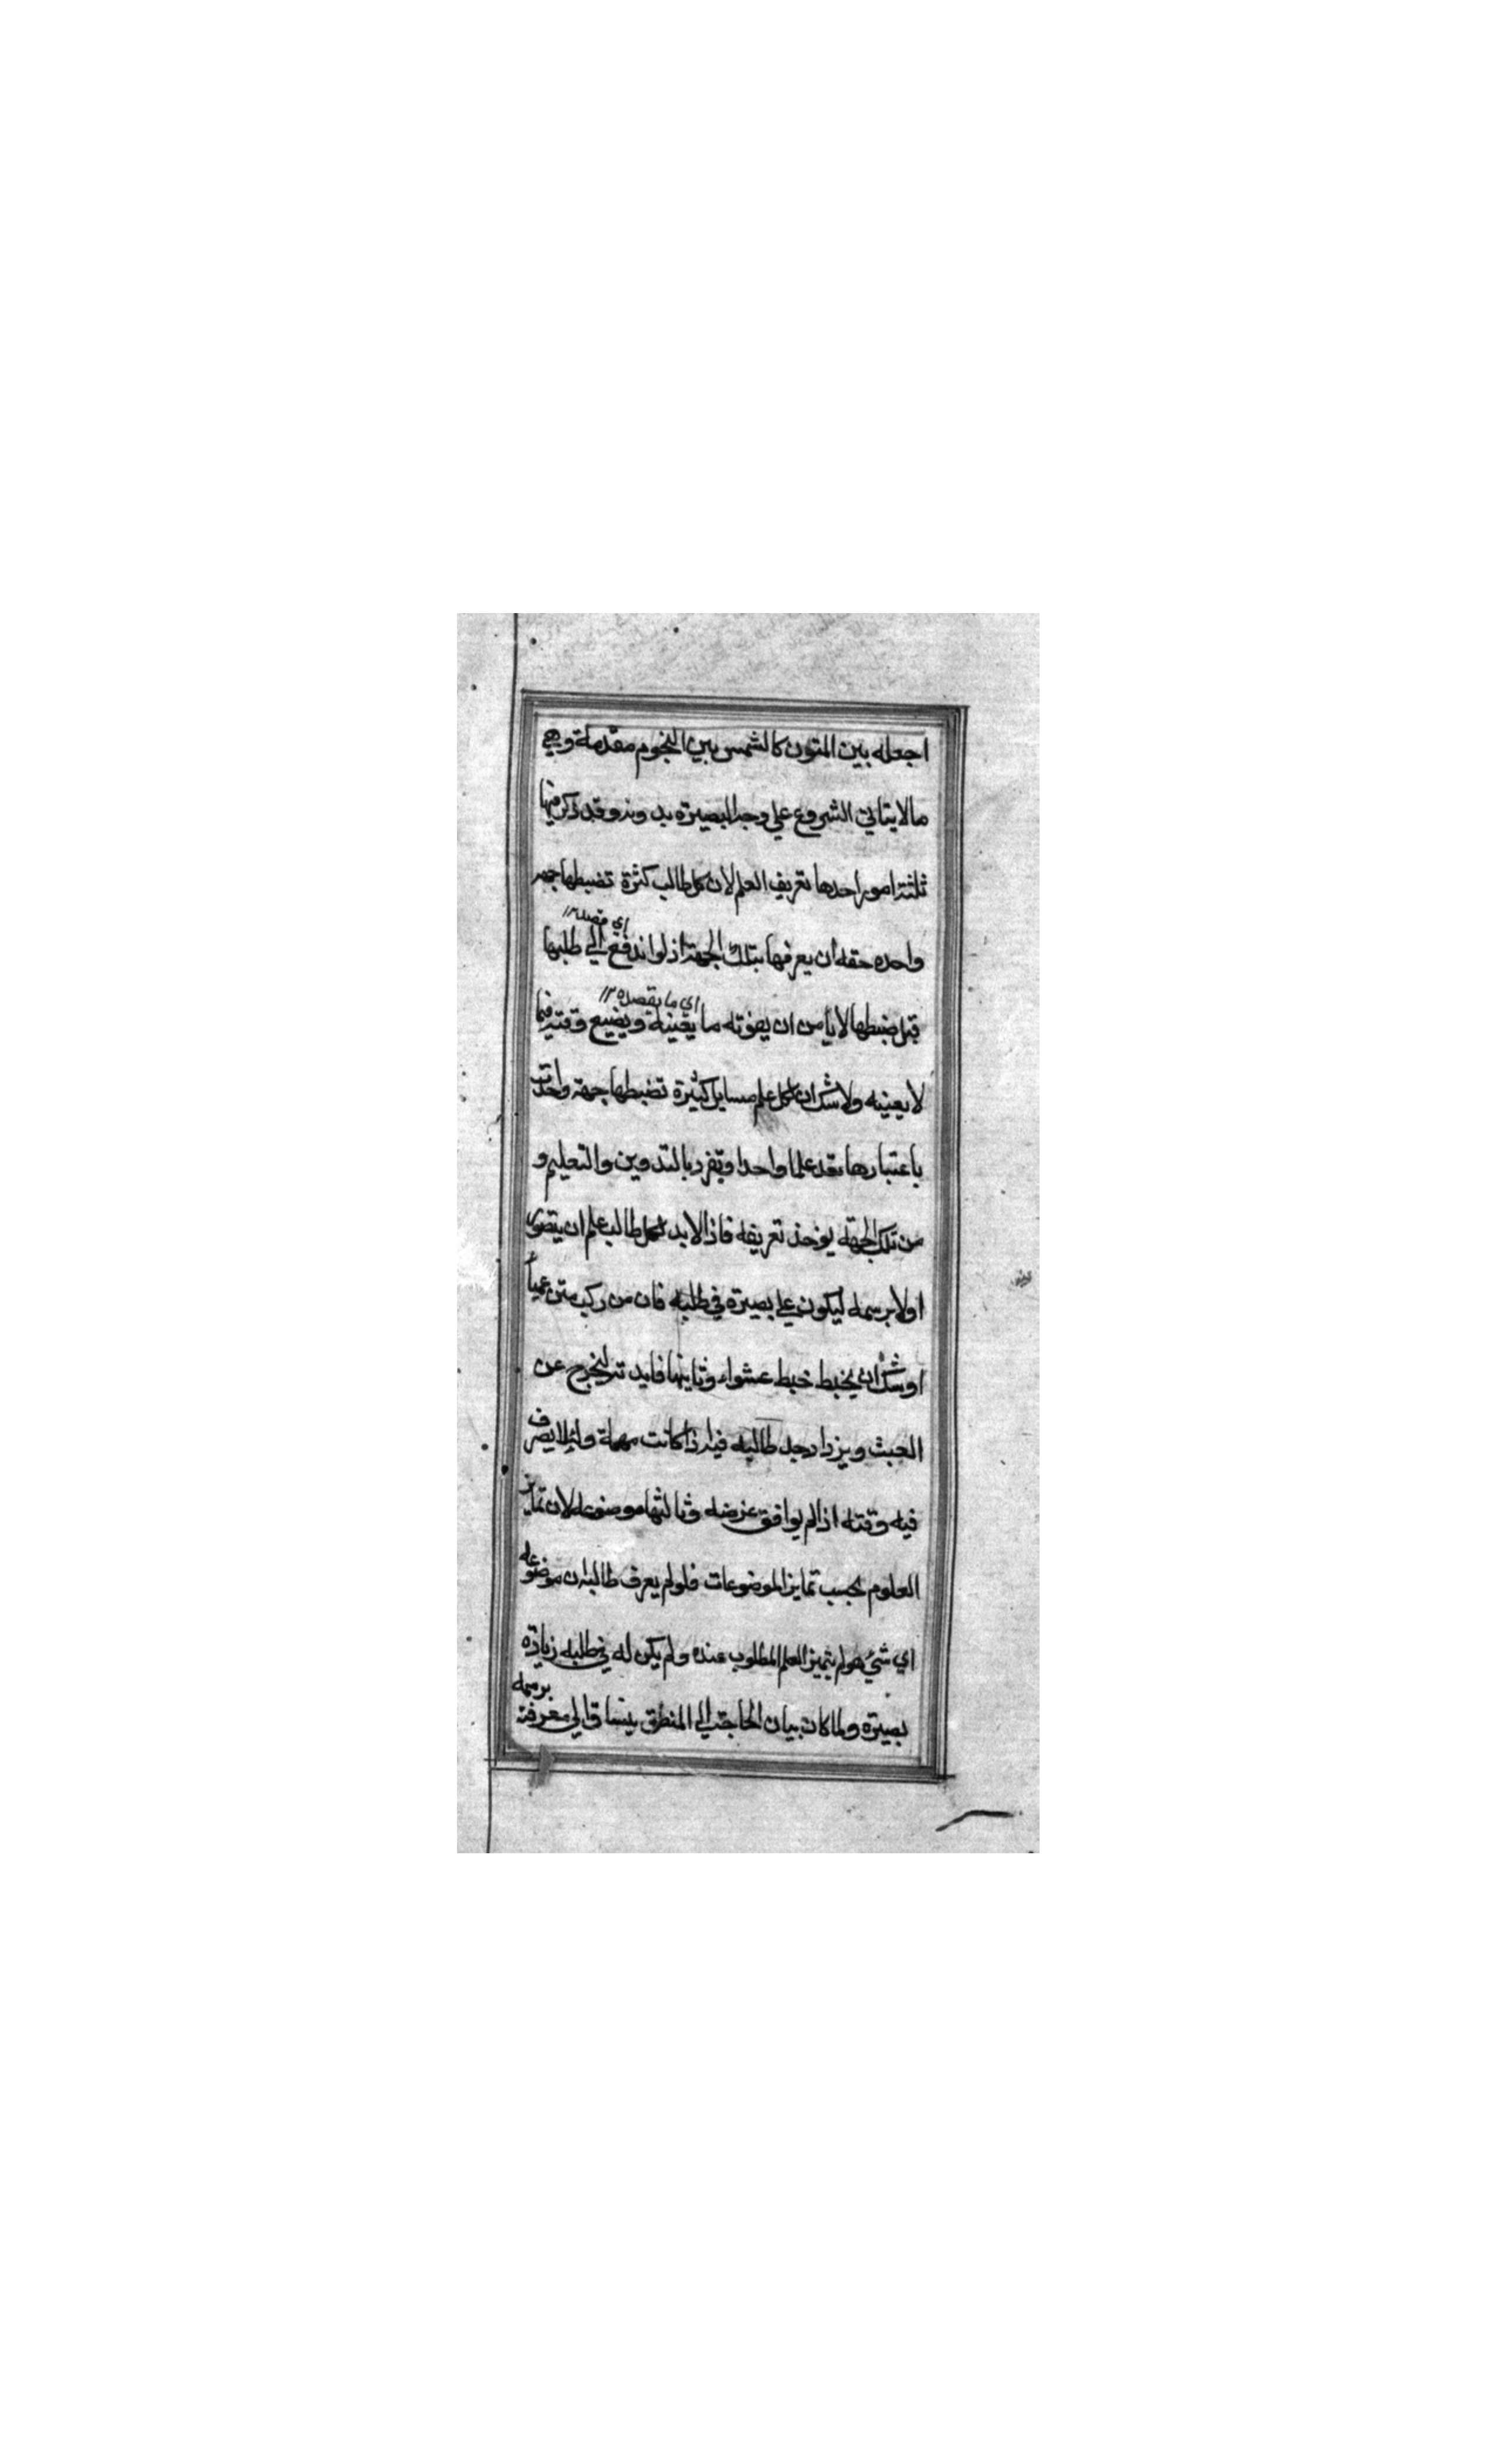 اجعله بين المتون كالشمس بين النجوم مقدمة وهي
مالا يتاتي الشروع علي وجه البصيرة بدونه وقد ذكر فيها
ثلثة امور احدها تعريف العلم لان كل طالب كثرة تضبطها جهة
اي قصد ١٢
واحده حقه ان يعرفها بتلك الجهة اذ لو اندفع الي طلبها
اي ما يقصده ١٢
قبل ضبطها لا يامن ان يفوته ما يعنيه ويضيع وقته فيما
لا يعنيه ولا شك ان كل علم مسايل كثيرة تضبطها جهة واحدة
باعتبارها تعد علما واحدا وتفرد بالتدوين والتعليم و
من تلك الجهة يوخذ تعريفه فاذا لابد لكل طالب علم ان يتصوره
اولا برسمه ليكون علي بصيرة في طلبه فان من ركب متن عمياً
اوشك ان يخبط خبط عشواء وثانيها فايدته ليخرج عن
العبث ويزداد جد طالبه فيه اذا كانت مهمة ولئلا يصرف
فيه وقته اذا لم يوافق غرضه وثالثها موضوعه لان تمايز
العلوم بحسب تمايز الموضوعات فلو لم يعرف طالبه ان موضوعه
اي شيُ هو لم يتميز العلم المطلوب عنده ولم يكن له في طلبه زيادة
بصيرة ولما كان بيان الحاجة الي المنطق ينساق الي معرفته
برسمه